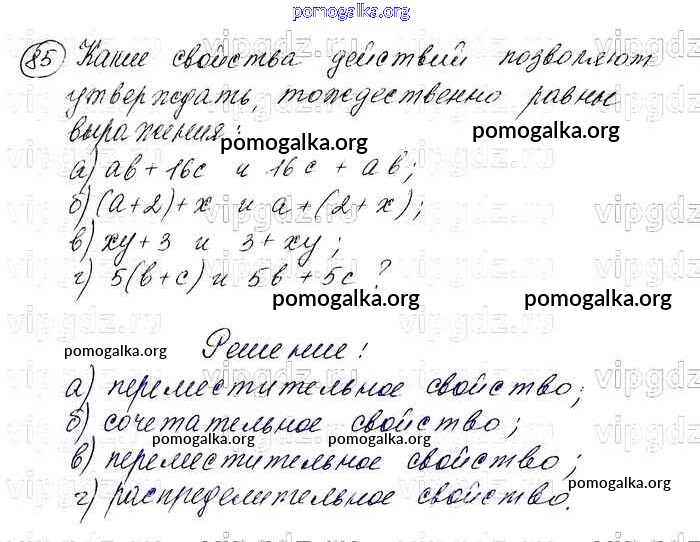 pomogalka.org
85 Какие свойства действий позволяют
утверждать, тождественно равны
выражения:
pomogalka.org pomogalka.org
а) ab + 16c и 16c + ab;
б) (a+2)+x и a+(2+x);
в) xy+3 и 3+xy;
г) 5(b+c) и 5b+5c?
pomogalka.org pomogalka.org
Решение!
pomogalka.org
а) переместительное свойство;
б) сочетательное свойство;
pomogalka.org pomogalka.org
в) переместительное свойство;
г) распределительное свойство.
pomogalka.org